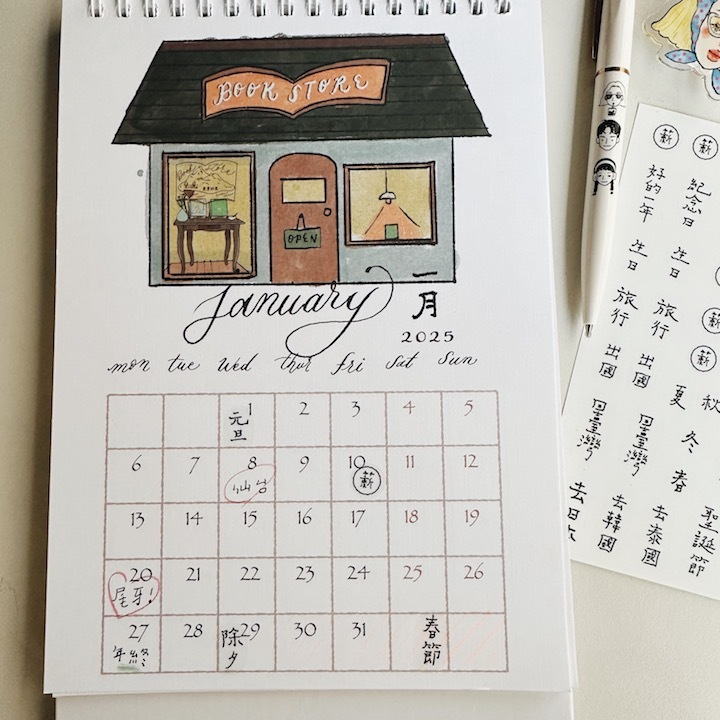 BOOK STORE
OPEN
January 一月
2025
mon tue wed thur fri sat sun
1 2 3 4 5
元旦
6 7 8 9 10 11 12
仙台 薪
13 14 15 16 17 18 19
20 21 22 23 24 25 26
尾牙!
27 28 29 30 31
年終 除夕 春節
薪 薪
好的一年 紀念日
生日 生日
旅行 旅行
薪
出國 出國
薪
夏 秋
回臺灣 回臺灣
冬
春
去日本 去韓國 去泰國 聖誕節